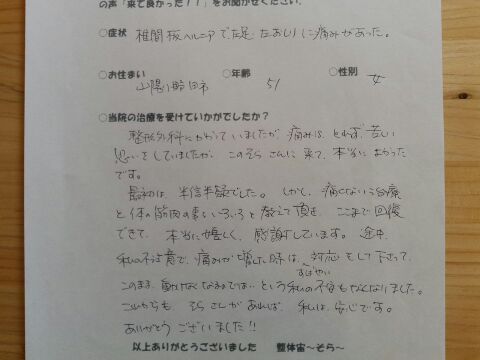 の声「来て良かった！！」をお聞かせください．
○症状 椎間板ヘルニアで、足、たおしりに痛みがあった。
○お住まい 山陽小野田市 ○年齢 51 ○性別 女
○当院の治療を受けていかがでしたか？
整形外科にかかっていましたが、痛みは、とれず、苦しい
思いをしていましたが、このそらさんに来て、本当によかった
です。
最初は、半信半疑でした。しかし、痛くない治療
と体の筋肉の事もいろいろと教えて頂き、ここまで回復
できて、本当に嬉しく、感謝しています。途中、
私の不注意で、痛みが増した時は、すばやい対応をして下さって、
このまま、動けなくなるのでは…という私の不安もなくなりました。
これからも、そらさんがあれば、私は安心です。
ありがとうございました!!
以上ありがとうございました 整体宙～そら～